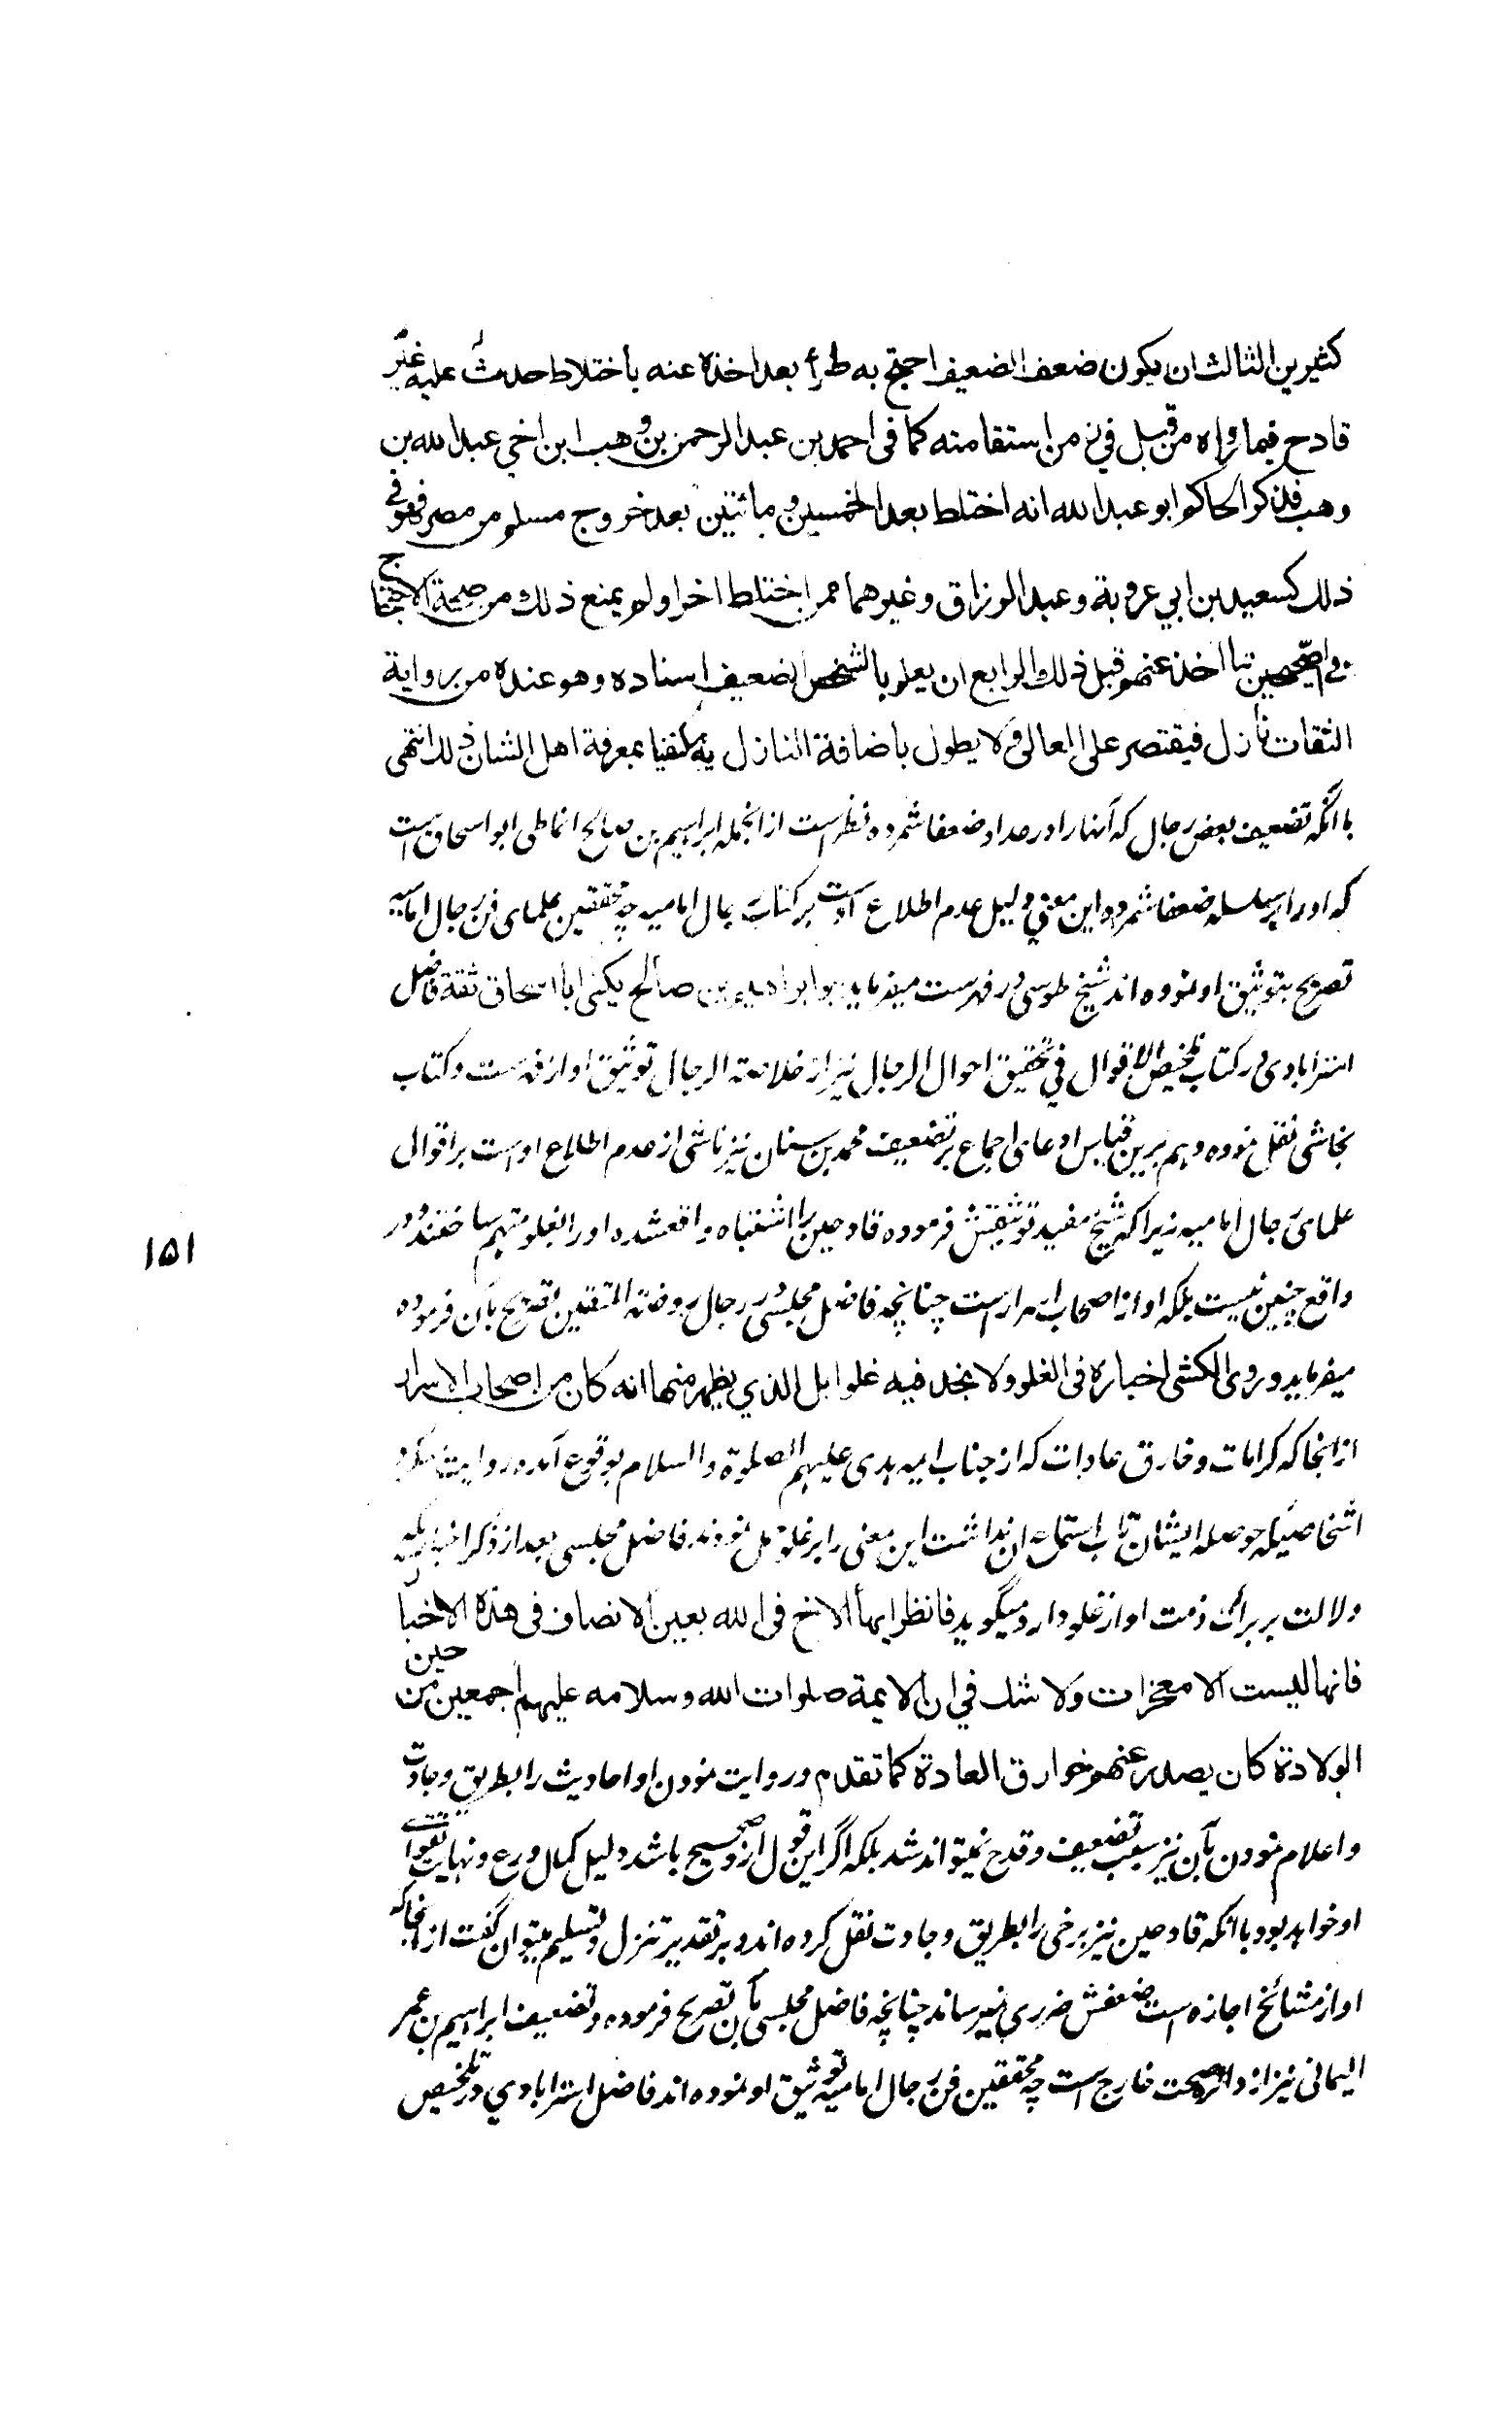 كثيرين الثالث ان يكون ضعف الضعيف احتج به طرأ بعد اخذه عنه باختلاط حدث عليه غير
قادح فيما رواه من قبل في زمن استقامته كما فى احمد بن عبد الرحمن بن وهب ابن اخي عبد الله بن
وهب فذكر الحاكم ابو عبد الله انه اختلط بعد الخمسين ومائتين بعد خروج مسلم من مصر فهو في
ذلك كسعيد بن ابي عروبة وعبد الرزاق وغيرهما ممن اختلط اخرا ولم يمنع ذلك من صحة الاحتجاج
في الصحيحين بما اخذ عنهم قبل ذلك الرابع ان يعلو بالشخص الضعيف اسناده وهو عنده من رواية
الثقات نازل فيقتصر على العالى ولا يطول باضافة النازل يه مكتفيا بمعرفة اهل الشان ذلك انتهى
با آنكه تضعيف بعض رجال كه آنها را در عداد ضعفا شمرده نظر است ازانجمله ابراهيم بن صالح انماطى ابو اسحاق است
كه او را بسلسله ضعفا شمرده اين معني دليل عدم اطلاع اوست بر كتاب رجال اماميه چه محققين علماى فن رجال اماميه
تصريح بتوثيق او نموده اند شيخ طوسى در فهرست ميفرمايد ابراهيم بن صالح يكنى ابا اسحاق ثقة فاضل
استرابادى در كتاب تلخيص الاقوال في تحقيق احوال الرجال نيز از خلاصة الرجال توثيق او از فهرست و كتاب
نجاشى نقل نموده و هم برين قياس ادعاى اجماع بر تضعيف محمد بن سنان نيز ناشى از عدم اطلاع اوست بر اقوال
علماى رجال اماميه زيرا كه شيخ مفيد توثيقش فرموده قادحين را اشتباه واقع شده او را بغلو متهم ساختند و در
واقع چنين نيست بلكه او از اصحاب اسرار است چنانچه فاضل مجلسى در رجال روضة المتقين تصريح بآن فرموده
ميفرمايد وروى الكشى اخباره فى الغلو ولا نجد فيه غلوا بل الذي يظهر منها انه كان من اصحاب الاسرار
ازانجا كه كرامات و خارق عادات كه از جناب ايمه هدى عليهم الصلوة والسلام بوقوع آمده روايت ميكرد
اشخاصيكه حوصله ايشان تاب استماع آن نداشت اين معنى را بر غلو حمل نمودند فاضل مجلسى بعد از ذكر اخباريكه
دلالت بر برائت ذمت او از غلو دارد ميگويد فانظر ايها الاخ فى الله بعين الانصاف فى هذه الاخبار
فانها ليست الا معجزات ولا شك في ان الايمة صلوات الله وسلامه عليهم اجمعين من حين
الولادة كان يصدر عنهم خوارق العادة كما تقدم و روايت نمودن او احاديث را بطريق وجادت
و اعلام نمودن بآن نيز سبب تضعيف و قدح نميتواند شد بلكه اگر اين قول ازو صحيح باشد دليل كمال ورع و نهايت تقواى
او خواهد بود با آنكه قادحين نيز برخى را بطريق وجادت نقل كرده اند و بر تقدير تنزل و تسليم ميتوان گفت ازانجا كه
او از مشائخ اجازه است ضعفش ضررى نميرساند چنانچه فاضل مجلسى بآن تصريح فرموده و تضعيف ابراهيم بن عمر
اليمانى نيز از دائره صحت خارج است چه محققين فن رجال اماميه توثيق او نموده اند فاضل استرابادي در تلخيص
١٥١